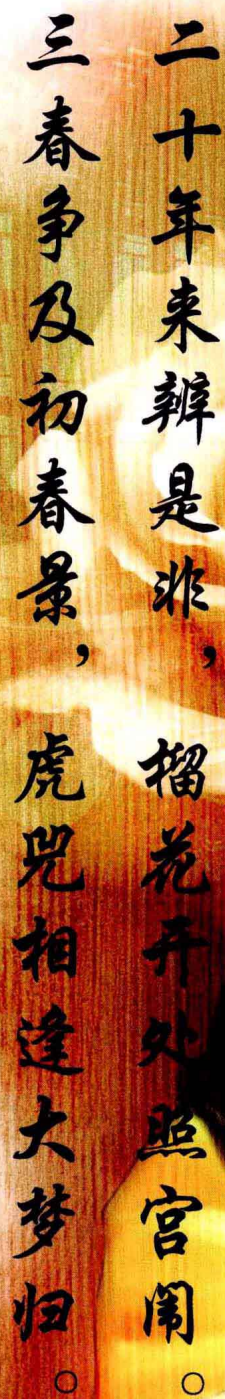 二十年来辨是非，榴花开处照宫闱。
三春争及初春景，虎兕相逢大梦归。